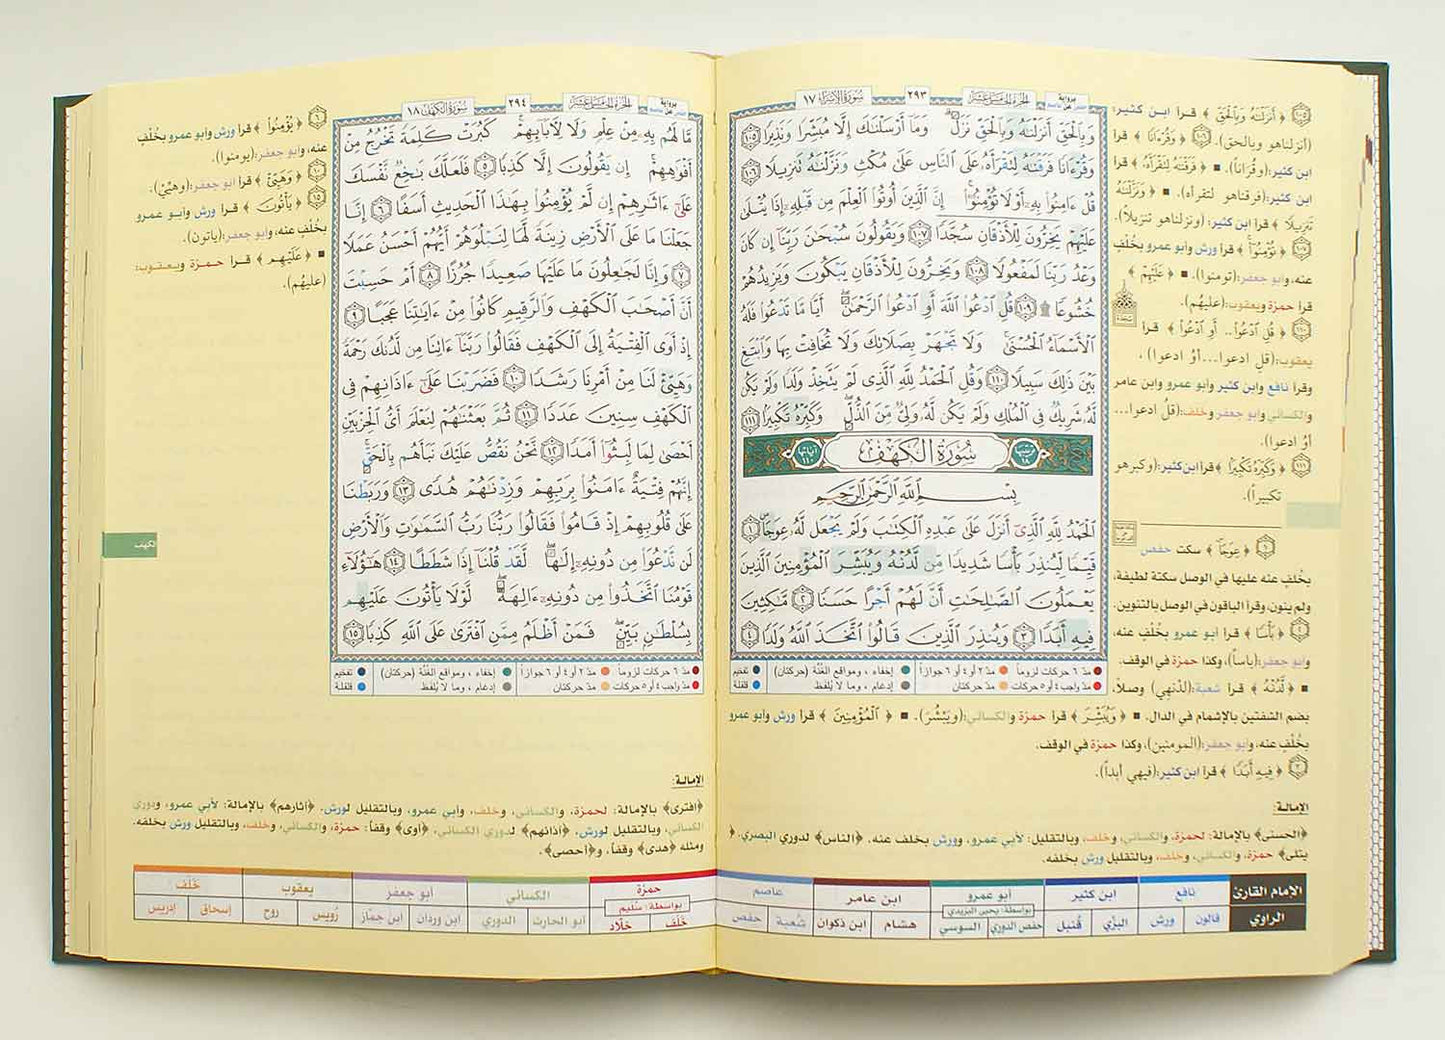 سورة الإسراء ١٧
٢٩٣
الجزء الخامس عشر
برواية
حفص عن عاصم
وَبِٱلْحَقِّ أَنزَلْنَٰهُ وَبِٱلْحَقِّ نَزَلَ ۗ وَمَآ أَرْسَلْنَٰكَ إِلَّا مُبَشِّرًا وَنَذِيرًا ١٠٥
وَقُرْءَانًا فَرَقْنَٰهُ لِتَقْرَأَهُۥ عَلَى ٱلنَّاسِ عَلَىٰ مُكْثٍ وَنَزَّلْنَٰهُ تَنزِيلًا ١٠٦
قُلْ ءَامِنُوا۟ بِهِۦٓ أَوْ لَا تُؤْمِنُوٓا۟ ۚ إِنَّ ٱلَّذِينَ أُوتُوا۟ ٱلْعِلْمَ مِن قَبْلِهِۦٓ إِذَا يُتْلَىٰ
عَلَيْهِمْ يَخِرُّونَ لِلْأَذْقَانِ سُجَّدًا ١٠٧ وَيَقُولُونَ سُبْحَٰنَ رَبِّنَآ إِن كَانَ
وَعْدُ رَبِّنَا لَمَفْعُولًا ١٠٨ وَيَخِرُّونَ لِلْأَذْقَانِ يَبْكُونَ وَيَزِيدُهُمْ
خُشُوعًا ۩ ١٠٩ قُلِ ٱدْعُوا۟ ٱللَّهَ أَوِ ٱدْعُوا۟ ٱلرَّحْمَٰنَ ۖ أَيًّا مَّا تَدْعُوا۟ فَلَهُ
ٱلْأَسْمَآءُ ٱلْحُسْنَىٰ ۚ وَلَا تَجْهَرْ بِصَلَاتِكَ وَلَا تُخَافِتْ بِهَا وَٱبْتَغِ
بَيْنَ ذَٰلِكَ سَبِيلًا ١١٠ وَقُلِ ٱلْحَمْدُ لِلَّهِ ٱلَّذِى لَمْ يَتَّخِذْ وَلَدًا وَلَمْ يَكُن
لَّهُۥ شَرِيكٌ فِى ٱلْمُلْكِ وَلَمْ يَكُن لَّهُۥ وَلِىٌّ مِّنَ ٱلذُّلِّ ۖ وَكَبِّرْهُ تَكْبِيرًۢا ١١١
ترتيبها ١٨
سُورَةُ الكَهْفِ
آياتها ١١٠
بِسْمِ ٱللَّهِ ٱلرَّحْمَٰنِ ٱلرَّحِيمِ
ٱلْحَمْدُ لِلَّهِ ٱلَّذِىٓ أَنزَلَ عَلَىٰ عَبْدِهِ ٱلْكِتَٰبَ وَلَمْ يَجْعَل لَّهُۥ عِوَجَاۜ ١
قَيِّمًا لِّيُنذِرَ بَأْسًا شَدِيدًا مِّن لَّدُنْهُ وَيُبَشِّرَ ٱلْمُؤْمِنِينَ ٱلَّذِينَ
يَعْمَلُونَ ٱلصَّٰلِحَٰتِ أَنَّ لَهُمْ أَجْرًا حَسَنًا ٢ مَّٰكِثِينَ
فِيهِ أَبَدًا ٣ وَيُنذِرَ ٱلَّذِينَ قَالُوا۟ ٱتَّخَذَ ٱللَّهُ وَلَدًا ٤
مدّ ٦ حركات لزوماً مدّ ٢ أو ٤ أو ٦ جوازاً إخفاء، ومواقع الغُنَّة (حركتان) تفخيم
مدّ واجب ٤ أو ٥ حركات مدّ حركتان إدغام، وما لا يُلفظ قلقلة
١٠٥ ﴿ أَنزَلْنَٰهُ وَبِٱلْحَقِّ ﴾ قرأ ابن كثير:
(أنزلناهو وبالحق). ١٠٦ ﴿ وَقُرْءَانًا ﴾ قرأ
ابن كثير:(وقُرَاناً). ■ ﴿ فَرَقْنَٰهُ لِتَقْرَأَهُۥ ﴾ قرأ
ابن كثير: (فرقناهو لتقرأه). ■ ﴿ وَنَزَّلْنَٰهُ
تَنزِيلًا ﴾ قرأ ابن كثير: (ونزلناهو تنزيلاً).
﴿ تُؤْمِنُوٓا۟ ﴾ قرأ ورش وأبو عمرو بخُلْفٍ
عنه، وأبو جعفر:(تومنوا). ■ ﴿ عَلَيْهِمْ ﴾
قرأ حمزة ويعقوب:(عليهُم).
١١٠ ﴿ قُلِ ٱدْعُوا۟.. أَوِ ٱدْعُوا۟ ﴾ قرأ
يعقوب:(قلِ ادعوا...أوُ ادعوا)،
وقرأ نافع وابن كثير وأبو عمرو وابن عامر
والكسائي وأبو جعفر وخلف:(قلُ ادعوا...
أوُ ادعوا).
١١١ ﴿ وَكَبِّرْهُ تَكْبِيرًا ﴾ قرأ ابن كثير:(وكبرهو
تكبيراً).
١ ﴿ عِوَجَاۜ ﴾ سكت حفص
بخُلفٍ عنه عليها في الوصل سكتة لطيفة،
ولم ينون، وقرأ الباقون في الوصل بالتنوين.
﴿ بَأْسًا ﴾ قرأ أبو عمرو بخُلْفٍ عنه،
وأبو جعفر:(باساً)، وكذا حمزة في الوقف.
■ ﴿ لَّدُنْهُ ﴾ قرأ شعبة:(لدْنِهي) وصلاً،
بضم الشفتين بالإشمام في الدال. ■ ﴿ وَيُبَشِّرَ ﴾ قرأ حمزة والكسائي:(ويَبْشُرَ). ■ ﴿ ٱلْمُؤْمِنِينَ ﴾ قرأ ورش وأبو عمرو
بخُلْفٍ عنه، وأبو جعفر:(المومنين)، وكذا حمزة في الوقف.
٣ ﴿ فِيهِ أَبَدًا ﴾ قرأ ابن كثير:(فيهي أبداً).
الإمالة:
﴿الحسنى﴾ بالإمالة: لحمزة، والكسائي، وخلف، وبالتقليل: لأبي عمرو، وورش بخلف عنه. ﴿الناس﴾ لدوري البصري. ﴿
يتلى﴾ حمزة، والكسائي، وخلف، وبالتقليل ورش بخلفه.
سورة الكهف ١٨
٢٩٤
الجزء الخامس عشر
برواية
حفص عن عاصم
مَّا لَهُم بِهِۦ مِنْ عِلْمٍ وَلَا لِءَابَآئِهِمْ ۚ كَبُرَتْ كَلِمَةً تَخْرُجُ مِنْ
أَفْوَٰهِهِمْ ۚ إِن يَقُولُونَ إِلَّا كَذِبًا ٥ فَلَعَلَّكَ بَٰخِعٌ نَّفْسَكَ
عَلَىٰٓ ءَاثَٰرِهِمْ إِن لَّمْ يُؤْمِنُوا۟ بِهَٰذَا ٱلْحَدِيثِ أَسَفًا ٦ إِنَّا
جَعَلْنَا مَا عَلَى ٱلْأَرْضِ زِينَةً لَّهَا لِنَبْلُوَهُمْ أَيُّهُمْ أَحْسَنُ عَمَلًا
٧ وَإِنَّا لَجَٰعِلُونَ مَا عَلَيْهَا صَعِيدًا جُرُزًا ٨ أَمْ حَسِبْتَ
أَنَّ أَصْحَٰبَ ٱلْكَهْفِ وَٱلرَّقِيمِ كَانُوا۟ مِنْ ءَايَٰتِنَا عَجَبًا ٩
إِذْ أَوَى ٱلْفِتْيَةُ إِلَى ٱلْكَهْفِ فَقَالُوا۟ رَبَّنَآ ءَاتِنَا مِن لَّدُنكَ رَحْمَةً
وَهَيِّئْ لَنَا مِنْ أَمْرِنَا رَشَدًا ١٠ فَضَرَبْنَا عَلَىٰٓ ءَاذَانِهِمْ فِى
ٱلْكَهْفِ سِنِينَ عَدَدًا ١١ ثُمَّ بَعَثْنَٰهُمْ لِنَعْلَمَ أَىُّ ٱلْحِزْبَيْنِ
أَحْصَىٰ لِمَا لَبِثُوٓا۟ أَمَدًا ١٢ نَّحْنُ نَقُصُّ عَلَيْكَ نَبَأَهُم بِٱلْحَقِّ ۚ
إِنَّهُمْ فِتْيَةٌ ءَامَنُوا۟ بِرَبِّهِمْ وَزِدْنَٰهُمْ هُدًى ١٣ وَرَبَطْنَا
عَلَىٰ قُلُوبِهِمْ إِذْ قَامُوا۟ فَقَالُوا۟ رَبُّنَا رَبُّ ٱلسَّمَٰوَٰتِ وَٱلْأَرْضِ
لَن نَّدْعُوَا۟ مِن دُونِهِۦٓ إِلَٰهًا ۖ لَّقَدْ قُلْنَآ إِذًا شَطَطًا ١٤ هَٰٓؤُلَآءِ
قَوْمُنَا ٱتَّخَذُوا۟ مِن دُونِهِۦٓ ءَالِهَةً ۖ لَّوْلَا يَأْتُونَ عَلَيْهِم
بِسُلْطَٰنٍۭ بَيِّنٍ ۖ فَمَنْ أَظْلَمُ مِمَّنِ ٱفْتَرَىٰ عَلَى ٱللَّهِ كَذِبًا ١٥
مدّ ٦ حركات لزوماً مدّ ٢ أو ٤ أو ٦ جوازاً إخفاء، ومواقع الغُنَّة (حركتان) تفخيم
مدّ واجب ٤ أو ٥ حركات مدّ حركتان إدغام، وما لا يُلفظ قلقلة
٦ ﴿ يُؤْمِنُوا۟ ﴾ قرأ ورش وأبو عمرو بخُلْفٍ
عنه، وأبو جعفر:(يومنوا).
١٠ ﴿ وَهَيِّئْ ﴾ قرأ أبو جعفر:(وهيّيْ).
١٥ ﴿ يَأْتُونَ ﴾ قرأ ورش وأبو عمرو
بخُلْفٍ عنه، وأبو جعفر:(ياتون).
■ ﴿ عَلَيْهِم ﴾ قرأ حمزة ويعقوب:
(عليهُم).
الكهف
الإمالة:
﴿افترى﴾ بالإمالة: لحمزة، والكسائي، وخلف، وأبي عمرو، وبالتقليل لورش. ﴿آثارهم﴾ بالإمالة: لأبي عمرو، ودوري
الكسائي، وبالتقليل لورش. ﴿آذانهم﴾ لدوري الكسائي. ﴿أوى﴾ وقفاً: حمزة، والكسائي، وخلف، وبالتقليل ورش بخلفه.
ومثله ﴿هدى﴾ وقفاً، و﴿أحصى﴾.
الإمام القارئ نافع ابن كثير أبو عمرو ابن عامر عاصم حمزة الكسائي أبو جعفر يعقوب خَلَف
بواسطة: يحيى اليزيدي بواسطة: سُليم
الراوي قالون ورش البزّي قُنبل حفص الدوري السوسي هشام ابن ذكوان شُعبة حفص خَلَف خلّاد أبو الحارث الدوري ابن وردان ابن جمّاز رُويس روح إسحاق إدريس